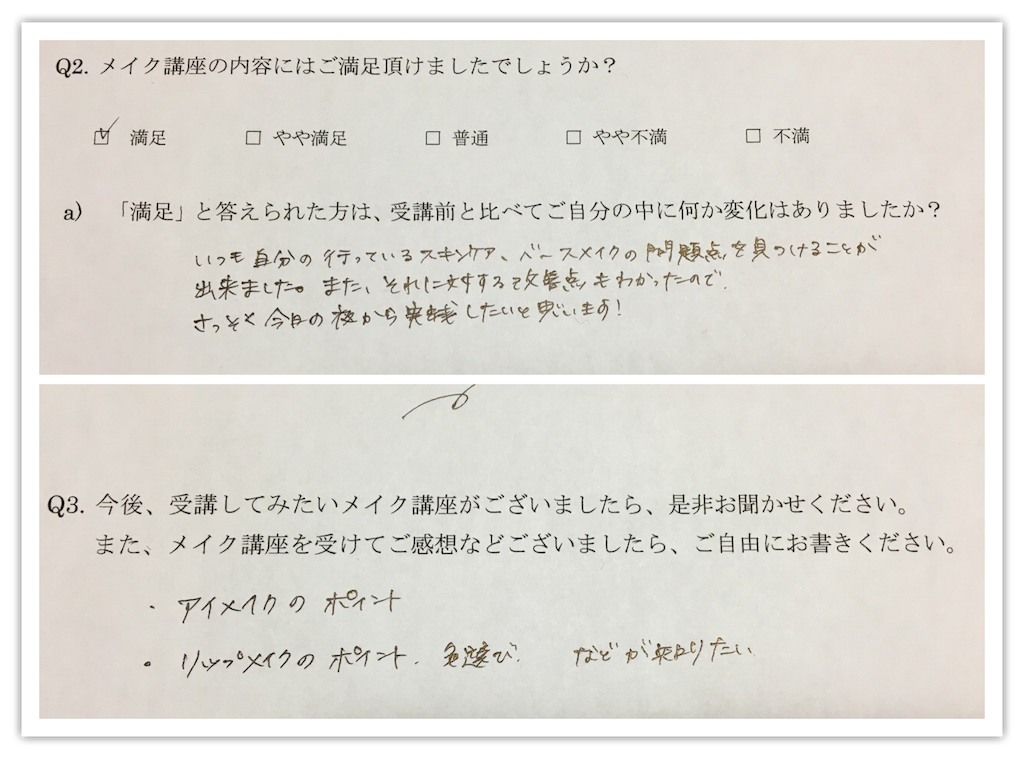 Q2. メイク講座の内容にはご満足頂けましたでしょうか？
☑ 満足 □ やや満足 □ 普通 □ やや不満 □ 不満
a) 「満足」と答えられた方は、受講前と比べてご自分の中に何か変化はありましたか？
いつも自分の行っているスキンケア、ベースメイクの問題点を見つけることが
出来ました。また、それに対する改善点もわかったので、
さっそく今日の夜から実践したいと思います！
Q3. 今後、受講してみたいメイク講座がございましたら、是非お聞かせください。
また、メイク講座を受けてご感想などございましたら、ご自由にお書きください。
・アイメイクのポイント
・リップメイクのポイント、色選び、 などが知りたい